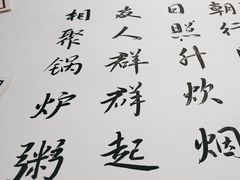 朝行
日照升炊烟
友人群群起
相聚锅炉粥